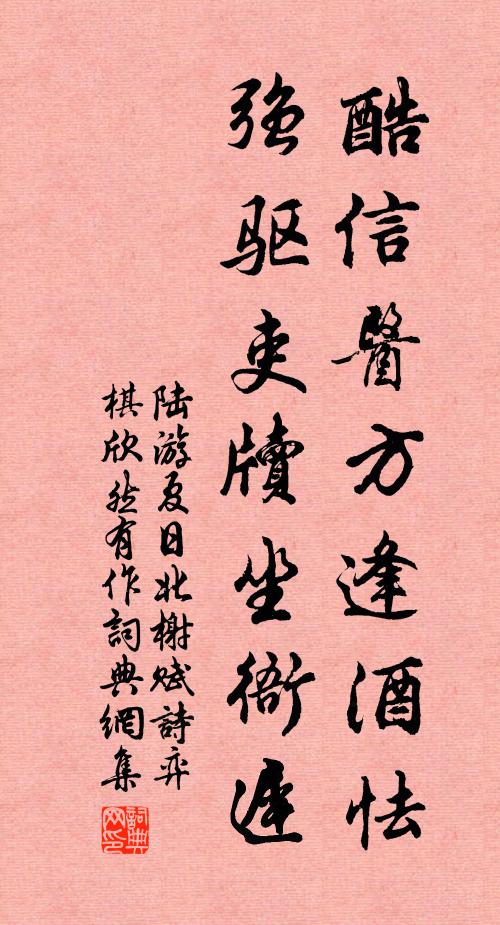 酷信醫方逢酒怯
强驱吏牘坐衙遲
陆游夏日北榭赋詩弈
棋欣然有作詞典網集
詞典
网印